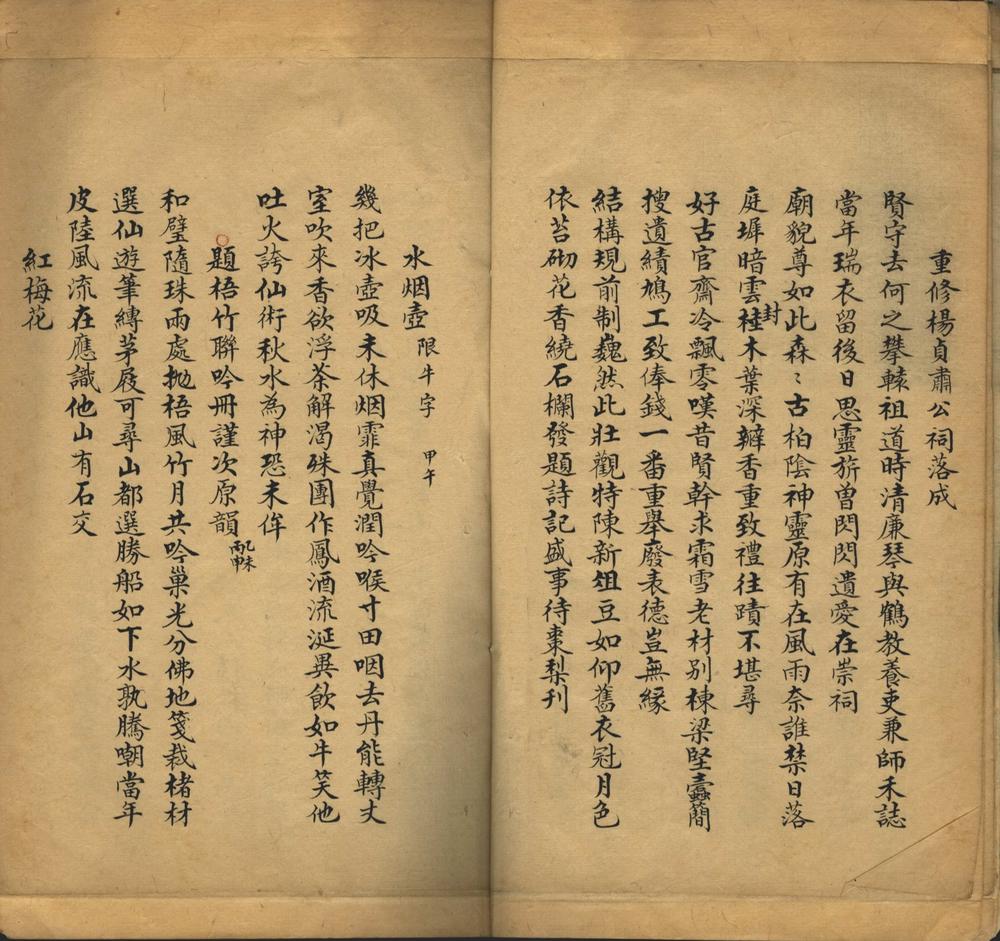 重修楊貞肅公祠落成
賢守去何之攀轅祖道時清廉琴與鶴教養吏兼師禾誌
當年瑞衣留後日思靈旂曾閃閃遺愛在崇祠
廟貌尊如此森〻古柏陰神靈原有在風雨奈誰禁日落
庭墀暗雲封桂木葉深瓣香重致禮往蹟不堪尋
好古官齋冷飄零嘆昔賢幹求霜雪老材別棟梁堅蠹簡
搜遺績鳩工致俸錢一番重舉廢表德豈無緣
結構規前制巍然此壯觀特陳新俎豆如仰舊衣冠月色
依苔砌花香繞石欄發題詩記盛事待棗梨刊
水烟壺 限牛字 甲午
幾把冰壺吸未休烟霏真覺潤吟喉寸田咽去丹能轉丈
室吹來香欲浮茶解渴殊團作鳳酒流涎異飲如牛笑他
吐火誇仙術秋水為神恐未侔
題梧竹聯吟冊謹次原韻 乙未丙申
和璧隨珠雨處拋梧風竹月共吟巢光分佛地箋栽楮材
選仙遊筆縛茅屐可尋山都選勝船如下水孰騰嘲當年
皮陸風流在應識他山有石交
紅梅花